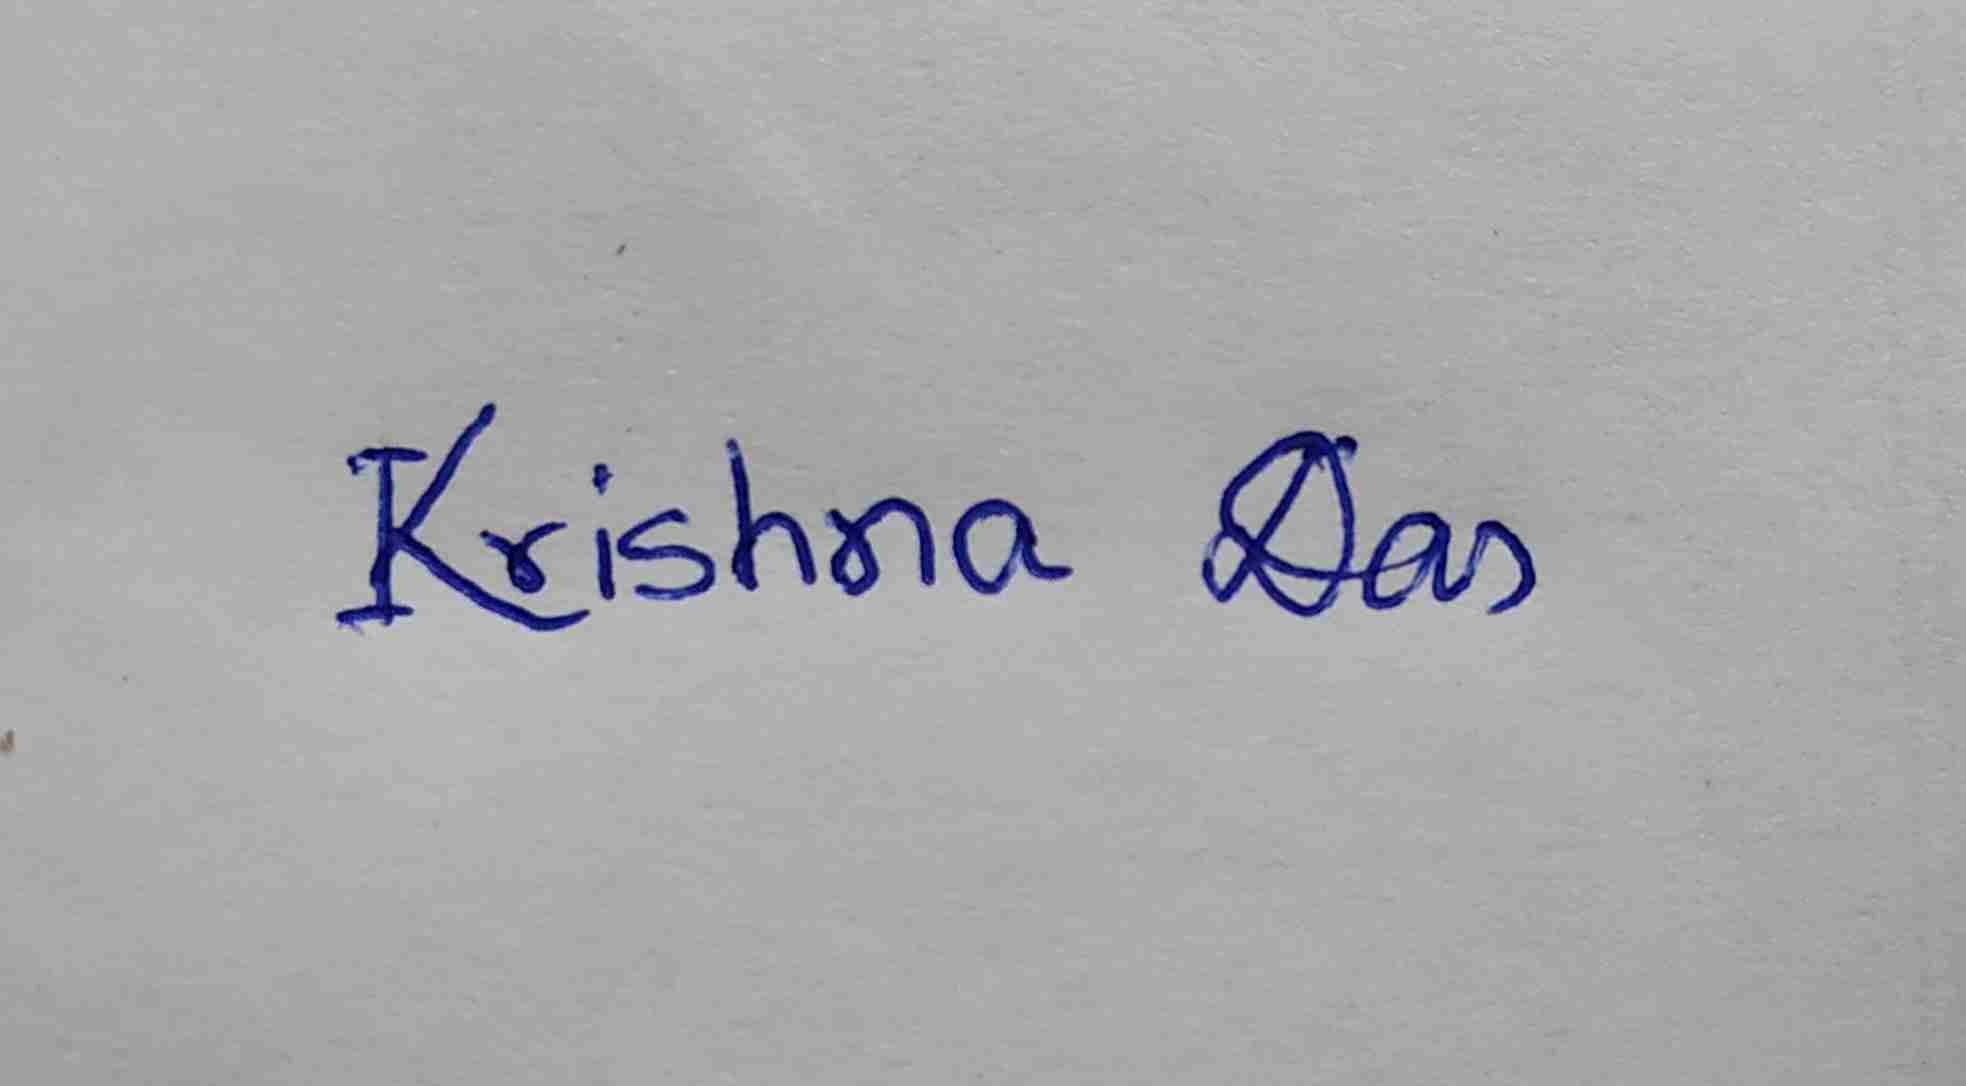 Krishna Das